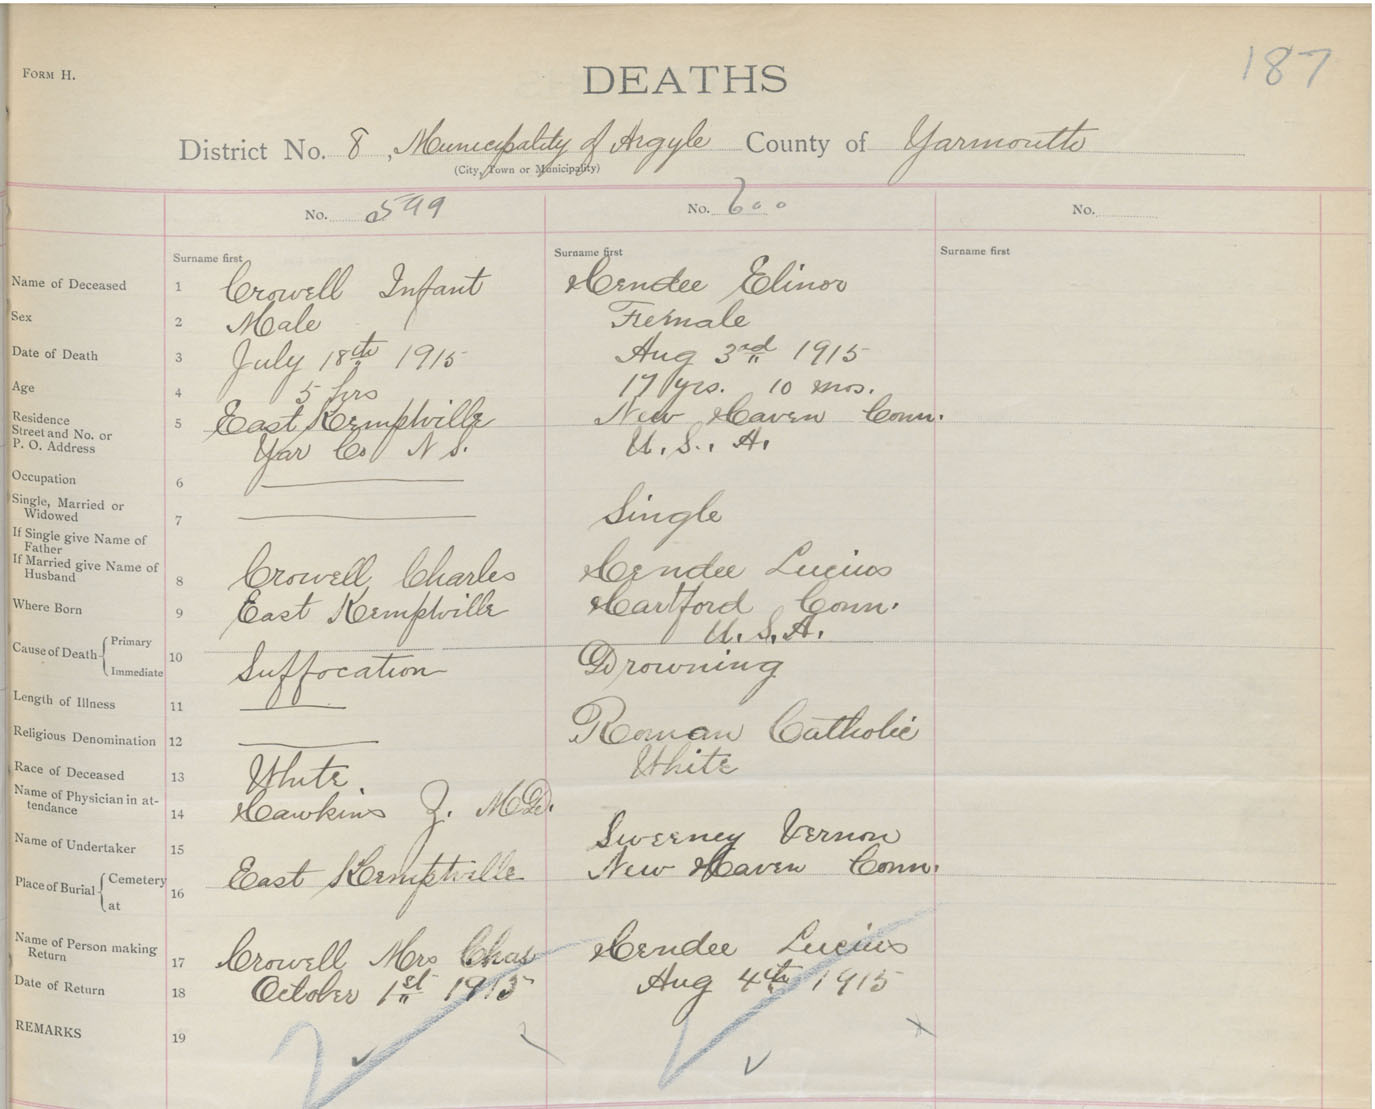 187
FORM H.
DEATHS
District No. 8, Municipality of Argyle County of Yarmouth
(City, Town or Municipality)
No. 599 No. 600 No.
Surname first Surname first Surname first
Name of Deceased 1 Crowell Infant Hendee Elinor
Sex 2 Male Female
Date of Death 3 July 18th 1915 Aug 3rd 1915
Age 4 5 hrs 17 yrs. 10 mos.
Residence
Street and No. or 5 East Kemptville New Haven Conn.
P. O. Address Yar Co N S. U. S. A.
Occupation 6
Single, Married or
Widowed 7 Single
If Single give Name of
Father
If Married give Name of
Husband 8 Crowell Charles Hendee Lucius
Where Born 9 East Kemptville Hartford Conn.
U. S. A.
Cause of Death Primary
Immediate 10 Suffocation Drowning
Length of Illness 11
Religious Denomination 12 Roman Catholic
Race of Deceased 13 White White
Name of Physician in at-
tendance 14 Hawkins Z. MD.
Name of Undertaker 15 Sweeney Vernon
Place of Burial Cemetery
at 16 East Kemptville New Haven Conn.
Name of Person making
Return 17 Crowell Mrs Chas Hendee Lucius
Date of Return 18 October 1st 1915 Aug 4th 1915
REMARKS 19